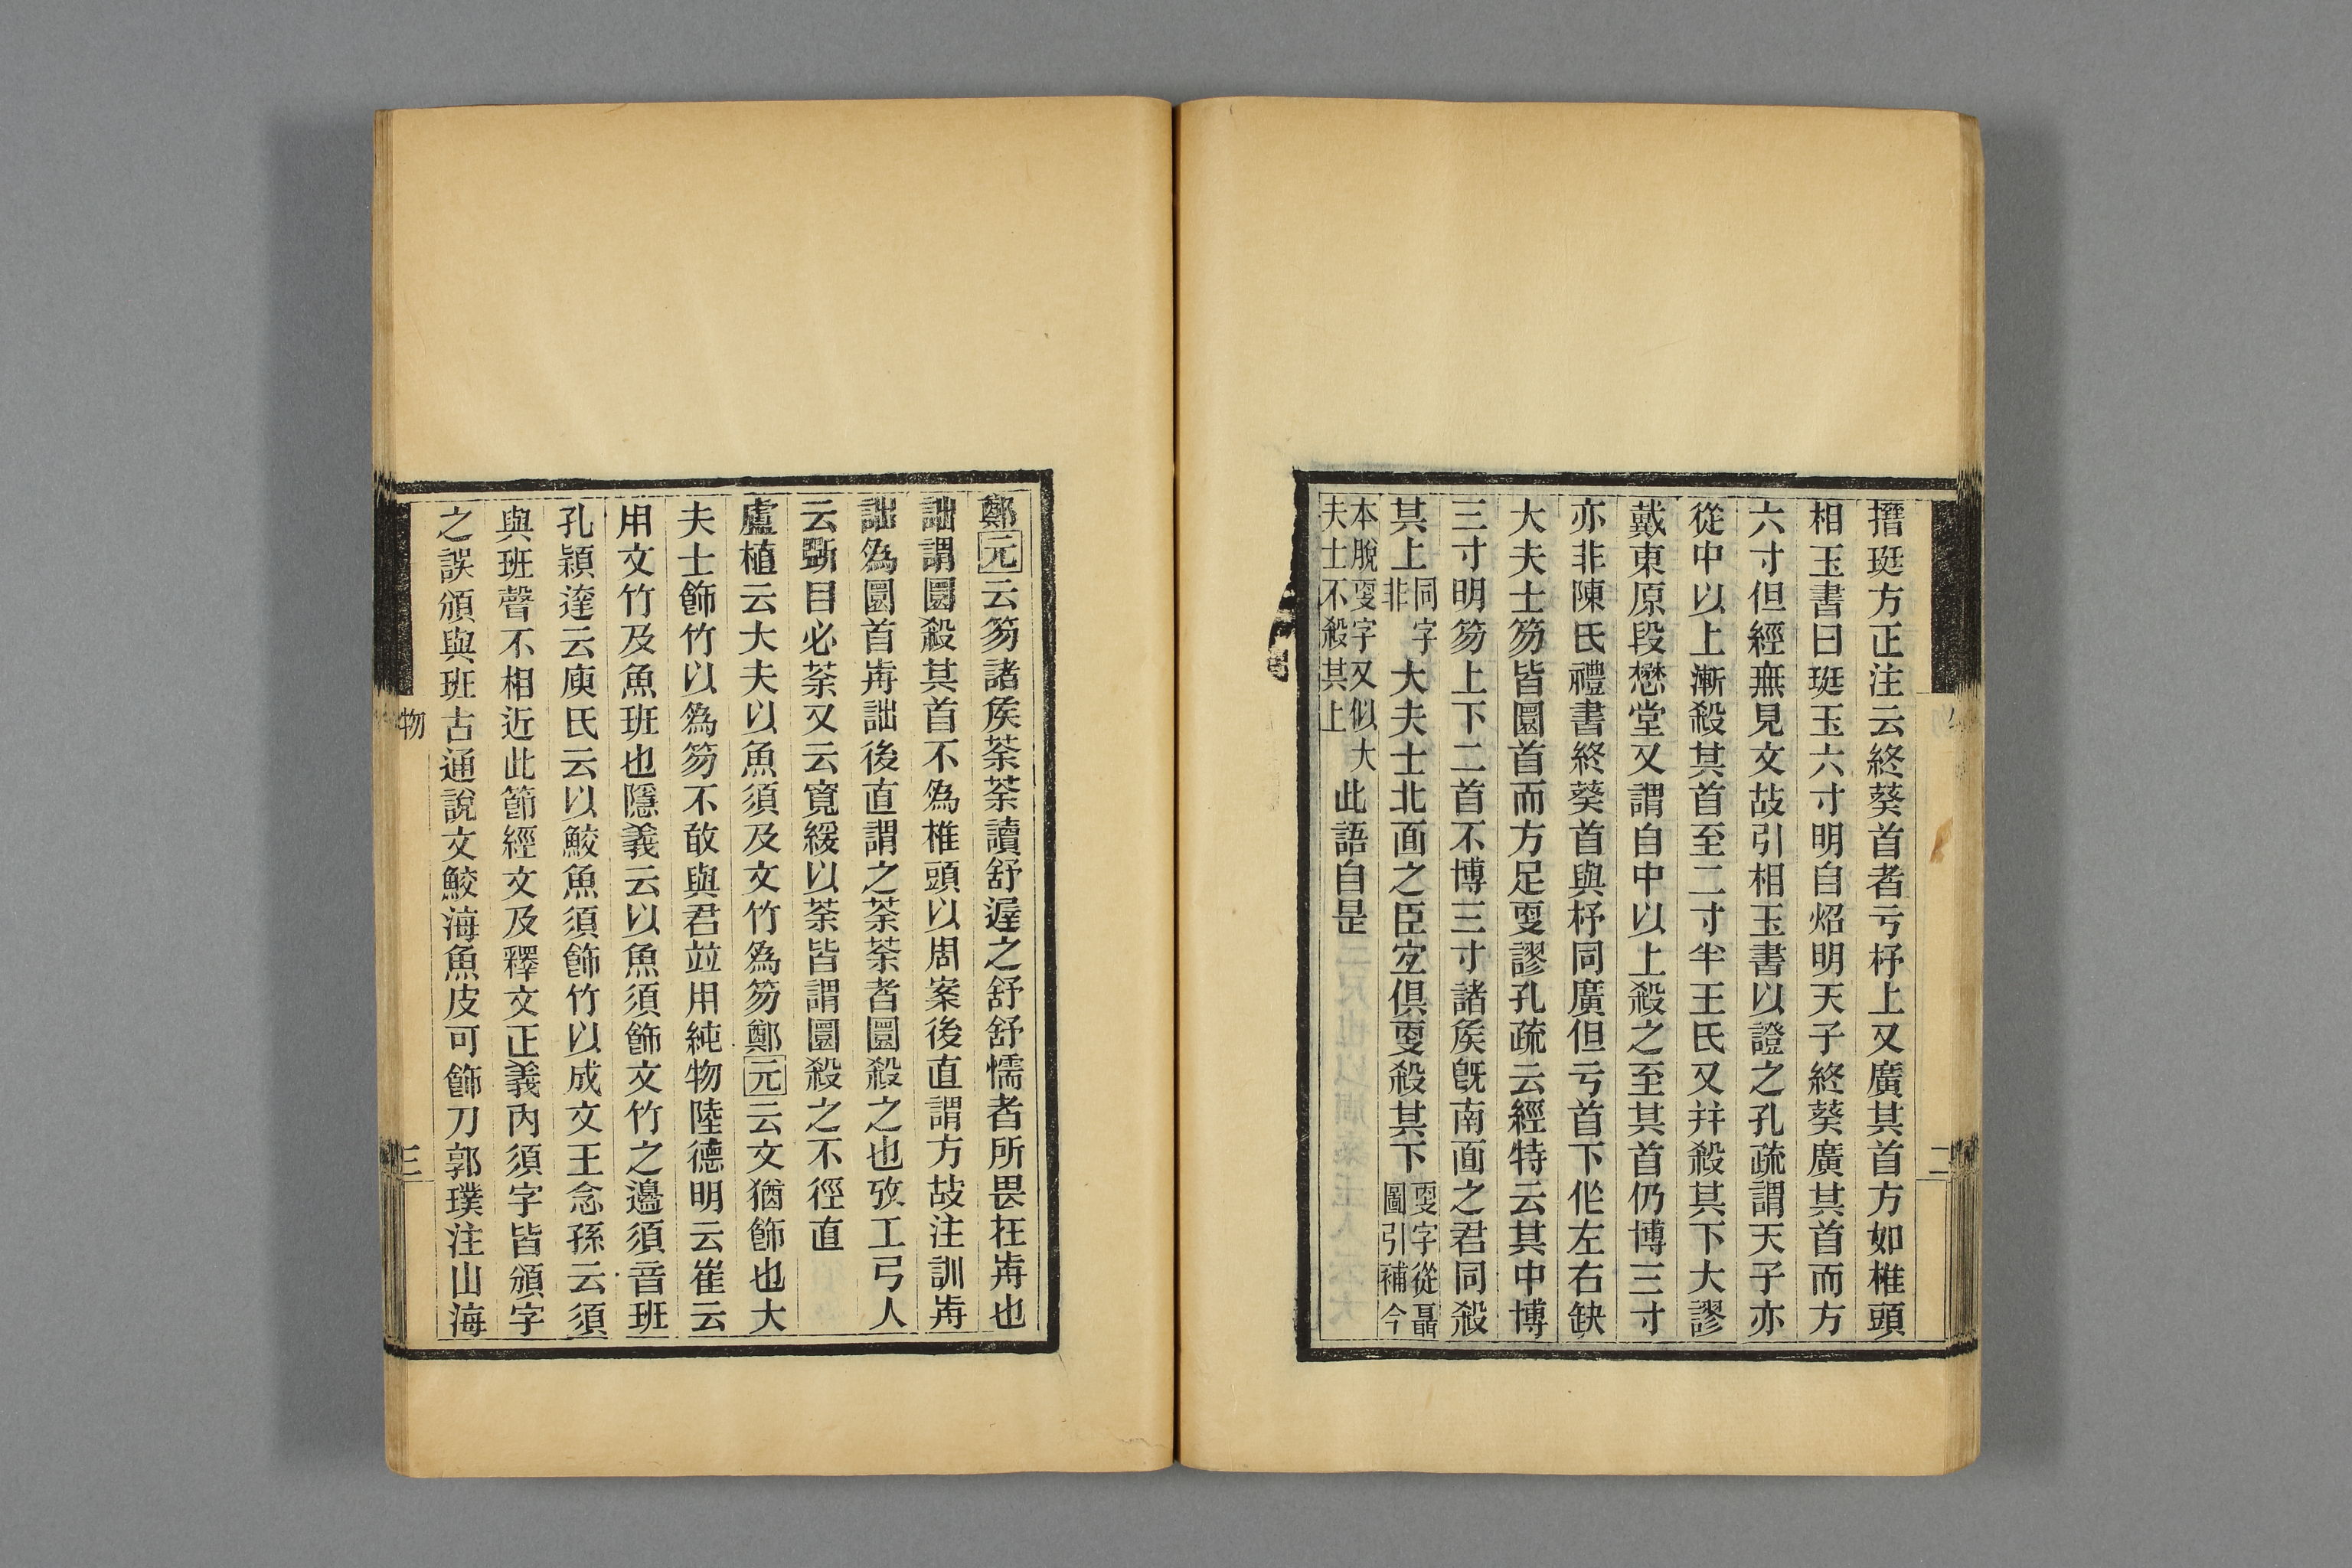 搢珽方正注云終葵首者亏杼上又廣其首方如椎頭
相玉書曰珽玉六寸明自炤明天子終葵廣其首而方
六寸但經無見文故引相玉書以證之孔疏謂天子亦
從中以上漸殺其首至二寸半王氏又幷殺其下大謬
戴東原段懋堂又謂自中以上殺之至其首仍博三寸
亦非陳氏禮書終葵首與杼同廣但亏首下㑅左右缺
大夫士笏皆圜首而方足㪅謬孔疏云經特云其中博
三寸明笏上下二首不博三寸諸矦旣南面之君同殺
其上同字非大夫士北面之臣宐俱㪅殺其下㪅字從聶圖引補今
本脫㪅字又似大夫士不殺其上此語自是
二
鄭元云笏諸矦荼荼讀舒遲之舒舒懦者所畏在歬也
詘謂圜殺其首不爲椎頭以周案後直謂方故注訓歬
詘爲圜首歬詘後直謂之荼荼者圜殺之也攷工弓人
云斲目必荼又云寬緩以荼皆謂圜殺之不徑直
盧植云大夫以魚須及文竹爲笏鄭元云文猶飾也大
夫士飾竹以爲笏不敢與君竝用純物陸德明云崔云
用文竹及魚班也隱義云以魚須飾文竹之邊須音班
孔穎達云庾氏云以鮫魚須飾竹以成文王念孫云須
與班聲不相近此節經文及釋文正義內須字皆頒字
之誤頒與班古通說文鮫海魚皮可飾刀郭璞注山海
物
三